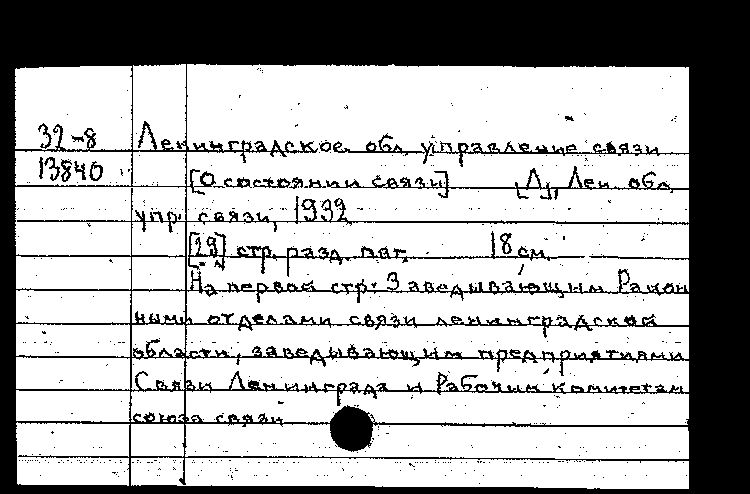 32-8 Ленинградское обл. управление связи
13840 [О состоянии связи] [Л], Лен. обл.
упр. связи, 1932
[29] стр. разд. паг. 18 см.
На первой стр: Заведывающим Район
ными отделами связи ленинградской
области, заведывающим предприятиями
Связи Ленинграда и Рабочим комитетам
союза связи